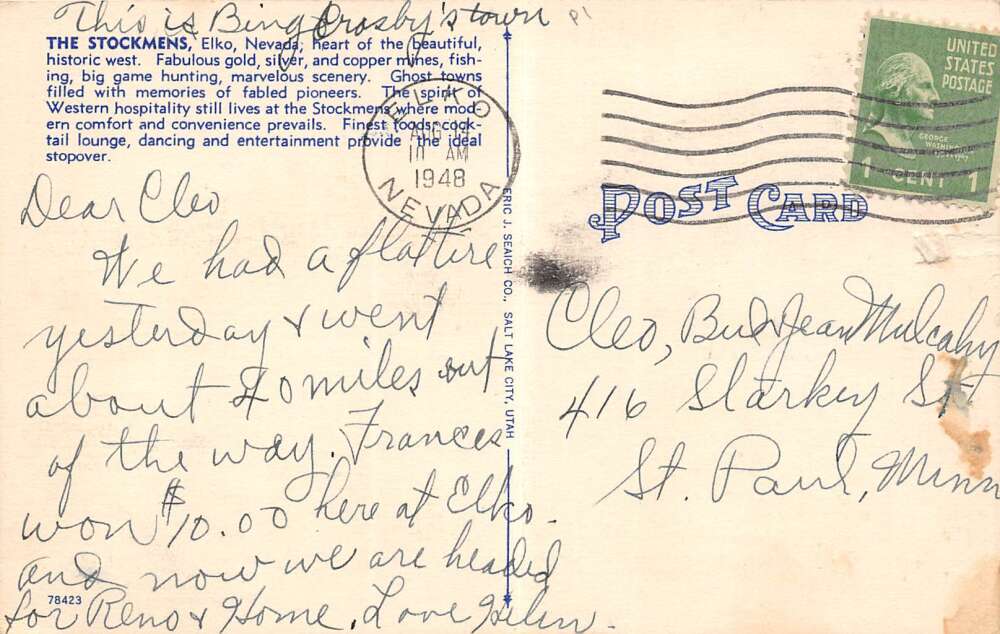 This is Bing Crosby's town
P1
THE STOCKMENS, Elko, Nevada, heart of the beautiful,
historic west. Fabulous gold, silver, and copper mines, fish-
ing, big game hunting, marvelous scenery. Ghost towns
filled with memories of fabled pioneers. The spirit of
Western hospitality still lives at the Stockmens where mod-
ern comfort and convenience prevails. Finest foods, cock-
tail lounge, dancing and entertainment provide the ideal
stopover.
ELKO
AUG
10 AM
1948
NEVADA
UNITED
STATES
POSTAGE
GEORGE
WASHINGTON
1 CENT 1
POST CARD
Dear Cleo
We had a flat tire
yesterday & went
about 40 miles out
of the way. Frances
won $10.00 here at Elko.
and now we are headed
for Reno & Home. Love Helen.
78423
ERIC J. SEAICH CO., SALT LAKE CITY, UTAH
Cleo, Bud & Jean Mulcahy
416 Starkey St
St. Paul, Minn